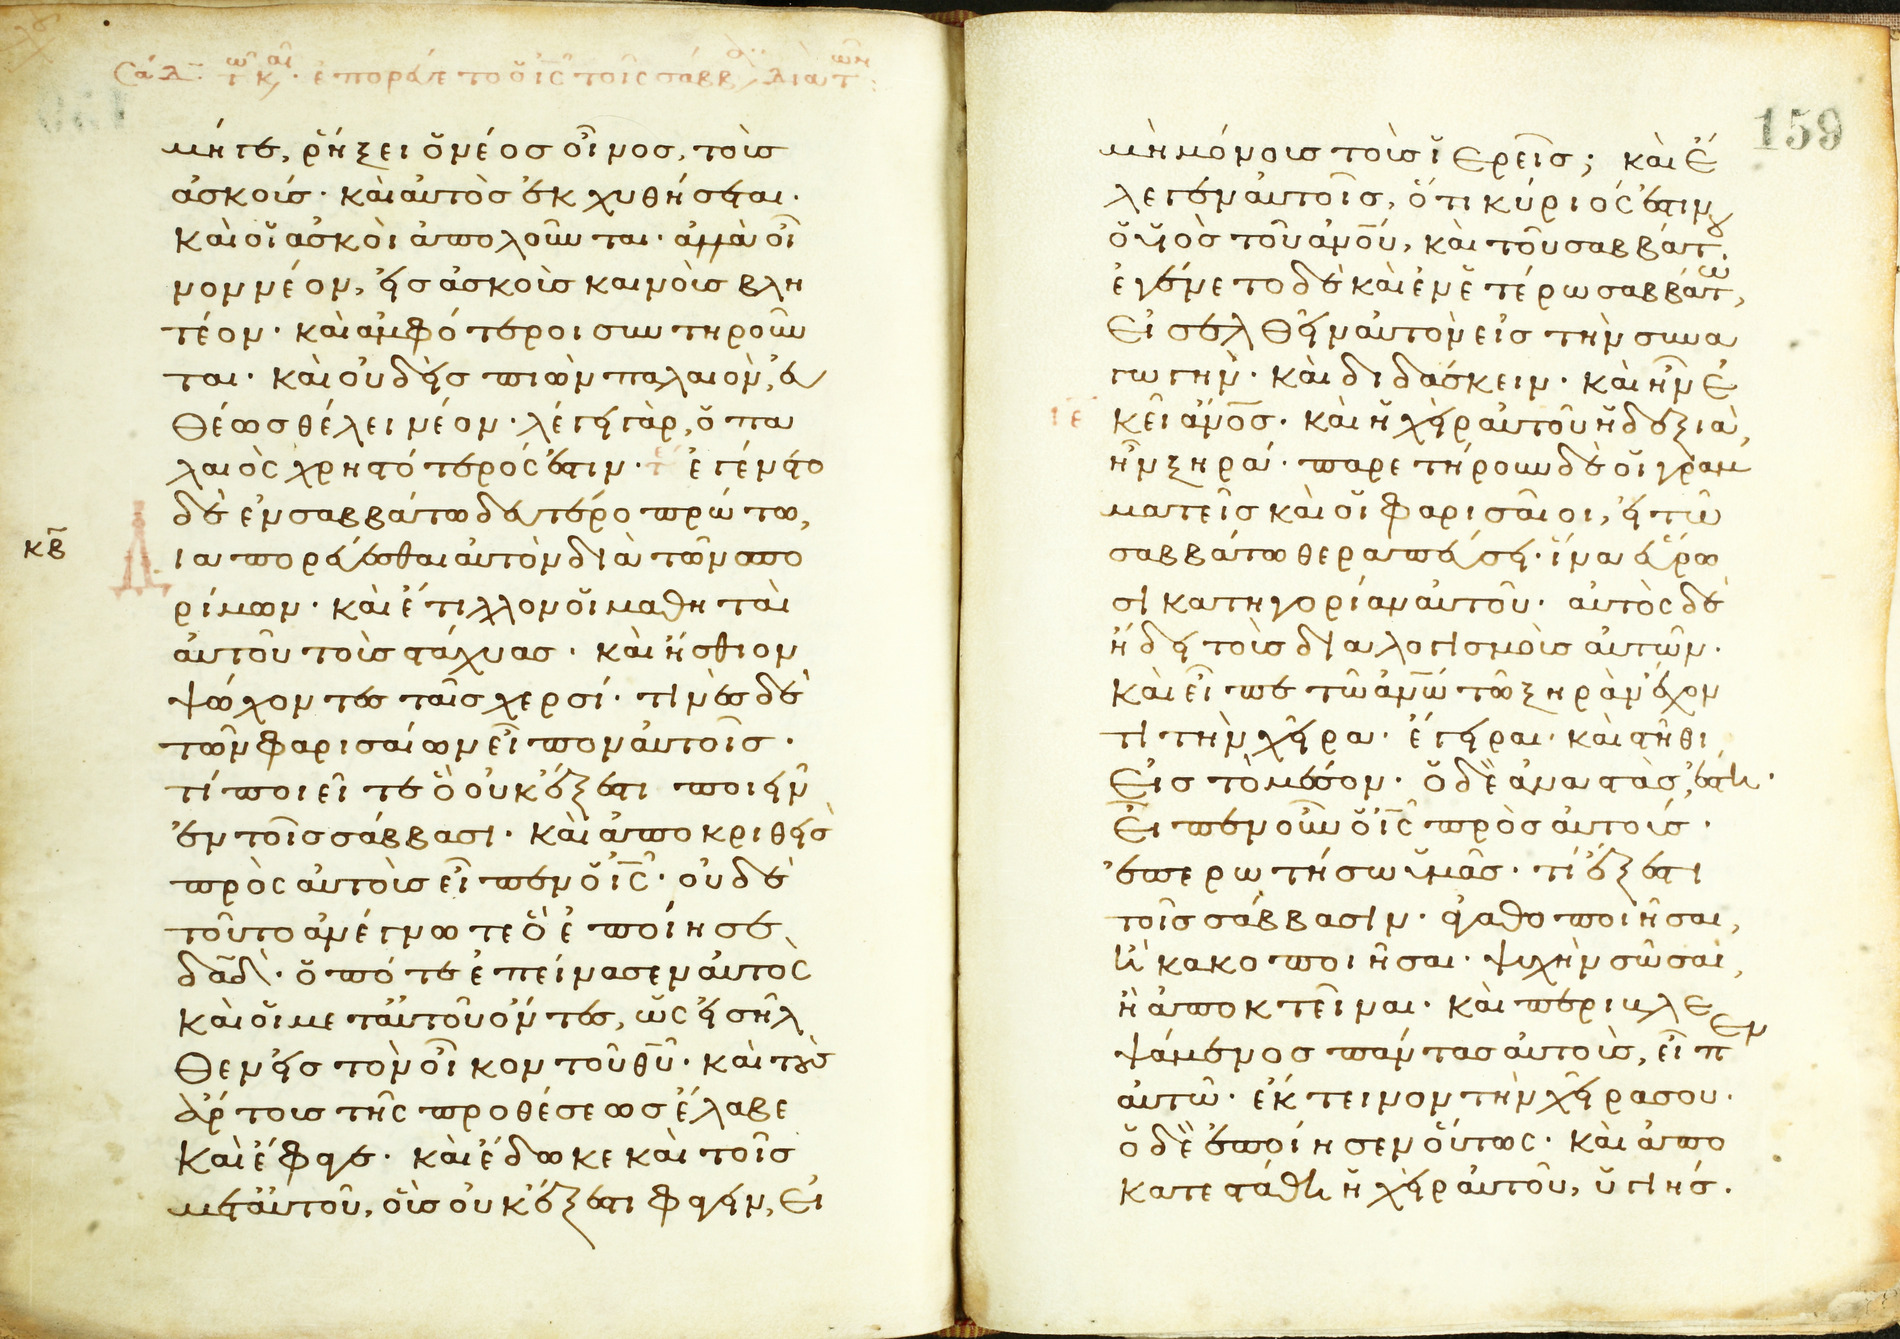 Σα Λ τ κ. ἐπορεύετο ὁ ι̅ς̅ τοῖς σάββ διὰ τ
μήγε, ῥήξει ὁ νέος οἶνος, τοὺς
ἀσκούς· καὶ αὐτὸς ἐκχυθήσεται·
καὶ οἱ ἀσκοὶ ἀπολοῦνται· ἀλλὰ οἶ
νον νέον, εἰς ἀσκοὺς καινοὺς βλη
τέον· καὶ ἀμφότεροι συντηροῦν
ται· καὶ οὐδεὶς πιὼν παλαιὸν, εὐ
θέως θέλει νέον· λέγει γὰρ, ὁ πα
λαιὸς χρηστότερός ἐστιν· ἐγένετο
δὲ ἐν σαββάτω δευτερο πρώτω,
ιαπορεύεσθαι αὐτὸν διὰ τῶν σπο
ρίμων· καὶ ἔτιλλον οἱ μαθηταὶ
αὐτοῦ τοὺς στάχυας· καὶ ἤσθιον
ψώχοντες ταῖς χερσί· τινὲς δὲ
τῶν φαρισαίων εἶπον αὐτοῖς·
τί ποιεῖτε ὃ οὐκ ἔξεστι ποιεῖν
ἐν τοῖς σάββασι· καὶ ἀποκριθεὶς
πρὸς αὐτοὺς εἶπεν ὁ ι̅ς̅· οὐδὲ
τοῦτο ἀνέγνωτε ὃ ἐποίησε
δα̅δ̅· ὁπότε ἐπείνασεν αὐτὸς
καὶ οἱ μετ αὐτοῦ ὄντες, ὡς εἰσῆλ
θεν εἰς τὸν οἶκον τοῦ θ̅υ̅· καὶ τοὺς
ἄρτους τῆς προθέσεως ἔλαβε
καὶ ἔφαγε· καὶ ἔδωκε καὶ τοῖς
μετ αὐτοῦ, οὓς οὐκ ἔξεστι φαγεῖν, εἰ
κβ
159
μὴ μόνους τοὺς ἱερεῖς; καὶ ἔ
λεγεν αὐτοῖς, ὅτι κύριός ἐστιν
ὁ υἱὸς τοῦ α̅ν̅ο̅υ̅, καὶ τοῦ σαββάτου.
ἐγένετο δὲ καὶ ἐν ἑτέρω σαββάτω,
εἰσελθεῖν αὐτὸν εἰς τὴν συνα
γωγὴν· καὶ διδάσκειν· καὶ ἦν ἐ
κεῖ α̅ν̅ο̅ς̅· καὶ ἡ χεὶρ αὐτοῦ ἡ δεξιὰ,
ἦν ξηρά· παρετήρουν δὲ οἱ γραμ
ματεῖς καὶ οἱ φαρισαῖοι, εἰ τῶ
σαββάτω θεραπεύσει· ἵνα εὕρω
σι κατηγορίαν αὐτοῦ· αὐτὸς δὲ
ἤδει τοὺς διαλογισμοὺς αὐτῶν·
καὶ εἶπε τῶ α̅ν̅ω̅ τῶ ξηρὰν ἔχον
τι τὴν χεῖρα· ἔγειραι· καὶ στῆθι
εἰς τὸ μέσον· ὁ δὲ ἀναστὰς, ἔστη·
εἶπεν οὖν ὁ ι̅ς̅ πρὸς αὐτούς·
ἐπερωτήσω ὑμᾶς· τί ἔξεστι
τοῖς σάββασιν· ἀγαθοποιῆσαι,
ἢ κακοποιῆσαι· ψυχὴν σῶσαι,
ἢ ἀποκτεῖναι· καὶ περιβλε
ψάμενος πάντας αὐτοὺς, εἶπεν
αὐτῶ· ἔκτεινον τὴν χεῖρα σου·
ὁ δὲ ἐποίησεν οὕτως· καὶ ἀπο
κατεστάθη ἡ χεὶρ αὐτοῦ, ὑγιής.